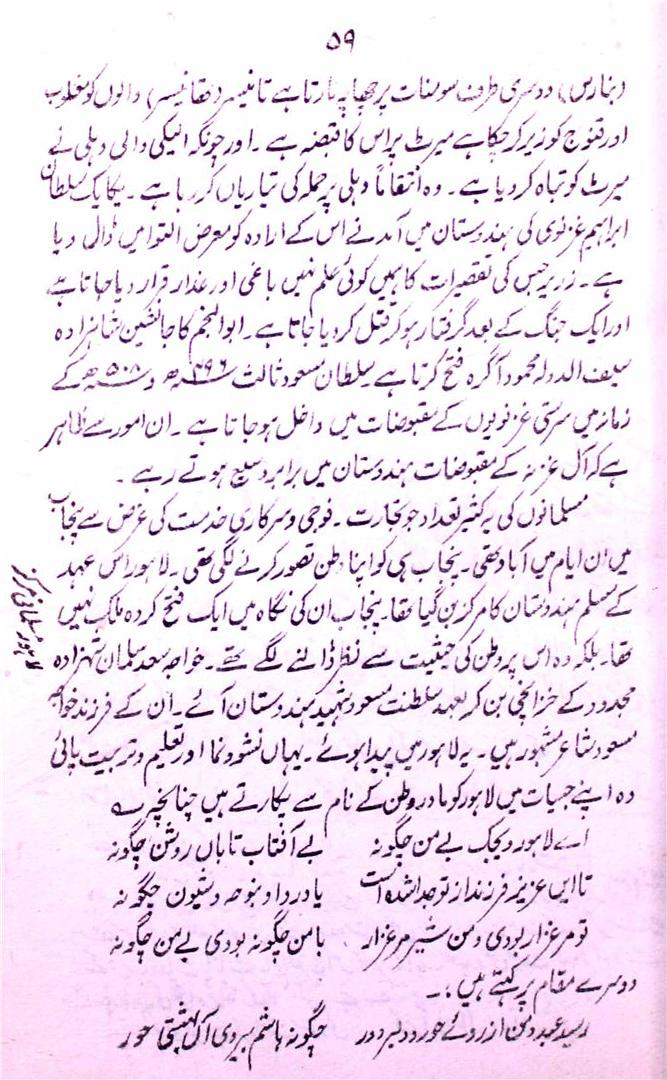 ۵۹
(بنارس) دوسری طرف سومنات پر چھاپہ مارتا ہے تانیسر (تھانیسر) والوں کو مغلوب
اور قنوج کو زیر کر چکا ہے میرٹ پر اس کا قبضہ ہے۔ اور چونکہ الیکی والی دہلی نے
میرٹ کو تباہ کر دیا ہے۔ وہ انتقاماً دہلی پر حملہ کی تیاریاں کر رہا ہے۔ یکایک سلطان
ابراہیم غزنوی کی ہندوستان میں آمد نے اس کے ارادہ کو معرض التوا میں ڈال دیا
ہے۔ زریر جس کی تقصیرات کا ہمیں کوئی علم نہیں باغی اور غدار قرار دیا جاتا ہے
اور ایک جنگ کے بعد گرفتار ہو کر قتل کر دیا جاتا ہے۔ ابو النجم کا جانشین شاہزادہ
سیف الدولہ محمود آگرہ فتح کرتا ہے سلطان مسعود ثالث ۴۹۶ھ و ۵۰۸ھ کے
زمانہ میں سرستی غزنویوں کے مقبوضات میں داخل ہو جاتا ہے۔ ان امور سے ظاہر
ہے کہ آل غزنہ کے مقبوضات ہندوستان میں برابر وسیع ہوتے رہے۔
مسلمانوں کی یہ کثیر تعداد جو تجارت۔ فوجی و سرکاری خدمت کی غرض سے پنجاب
میں ان ایام میں آباد تھی۔ پنجاب ہی کو اپنا وطن تصور کرنے لگی تھی۔ لاہور اس عہد
کے مسلم ہندوستان کا مرکز بن گیا تھا۔ پنجاب ان کی نگاہ میں ایک فتح کردہ ملک نہیں
تھا۔ بلکہ وہ اس پر وطن کی حیثیت سے نظر ڈالنے لگے تھے۔ خواجہ سعد سلمان شہزادہ
لاہور مسلمانی مرکز
مجدود کے خزانچی بن کر بعہد سلطنت مسعود شہید ہندوستان آئے۔ ان کے فرزند خواجہ
مسعود شاعر مشہور ہیں۔ یہ لاہور میں پیدا ہوئے۔ یہاں نشو و نما اور تعلیم و تربیت پائی
وہ اپنے حبسیات میں لاہور کو مادر وطن کے نام سے پکارتے ہیں چنانچہ
اے لاہور ویحک بے من چگونہ بے آفتاب تاباں روشن چگونہ
تا ایں عزیز فرزند از تو جدا شدہ است با درد او بنوحہ و شیون چگونہ
تو مرغزار بودی و من شیر مرغزار با من چگونہ بودی بے من چگونہ
دوسرے مقام پر کہتے ہیں :۔
رسید عید و من از روئے حور دلبر دور چگونہ باشم بیروی آں بہشتی حور